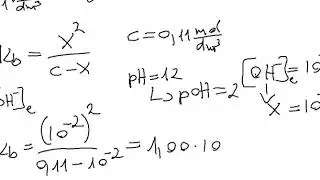 dm³
K_b = x² / (c - x)
c = 0,11 mol/dm³
pH = 12
↳ pOH = 2
[OH]_e = 10
x = 10
OH]_e
K_b = (10⁻²)² / (0,11 - 10⁻²) = 1,00 · 10